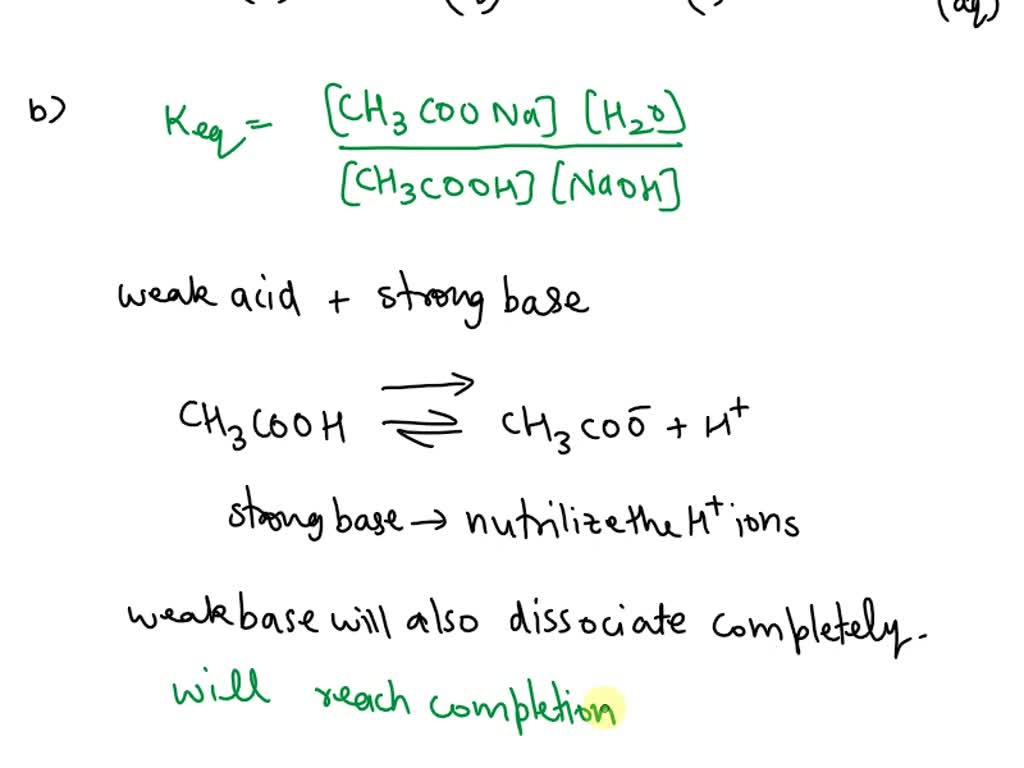 (aq)
b) Keq = [CH₃COONa] [H₂O]
[CH₃COOH] [NaOH]
weak acid + strong base
CH₃COOH ⇌ CH₃COO⁻ + H⁺
strong base → nutrilize the H⁺ ions
weak base will also dissociate completely.
will reach completion